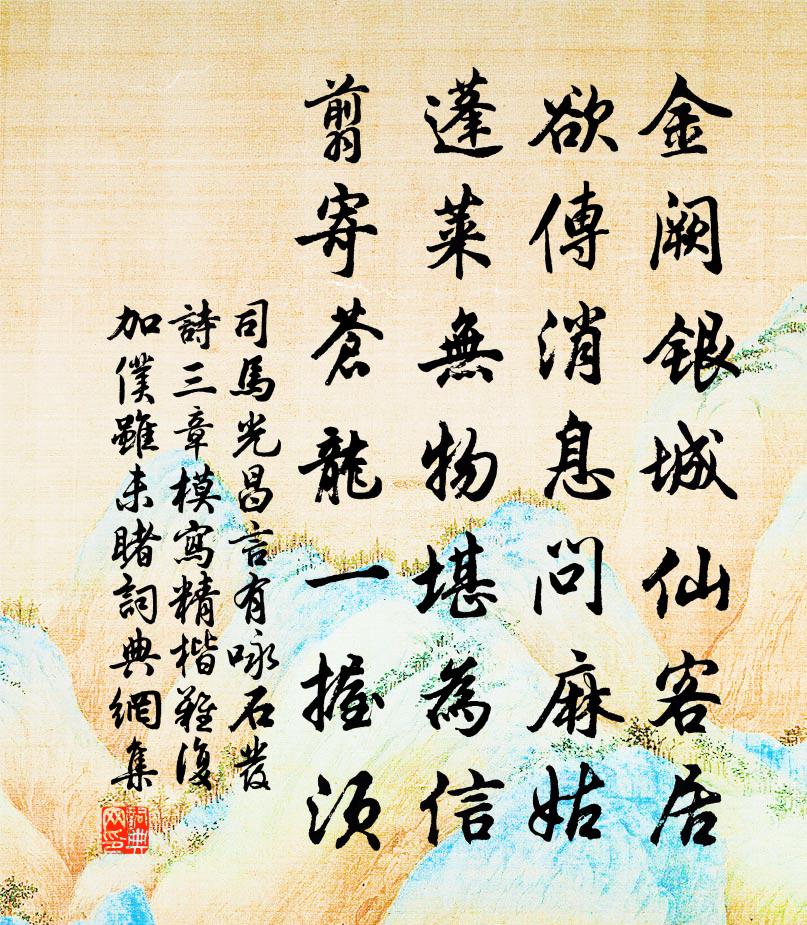 金阙銀城仙客居
欲傳消息問麻姑
蓬萊無物堪為信
翦寄蒼龍一握須
司馬光昌言有咏石發
詩三章模寫精楷難復
加僕雖未睹詞典網集
詞典
网印